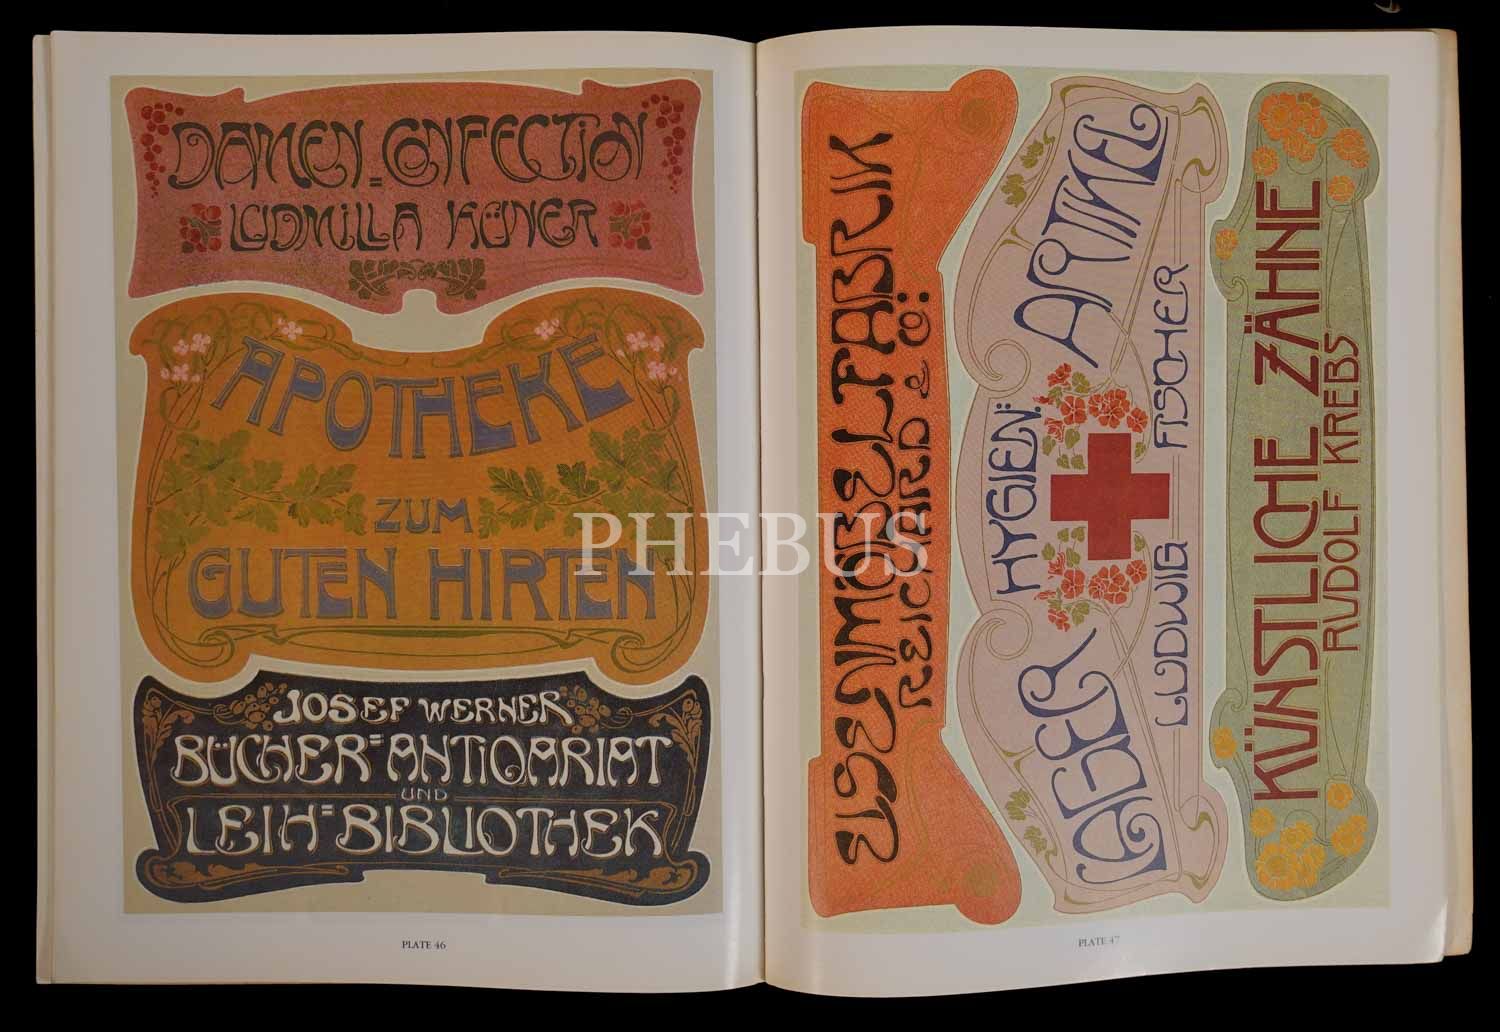 DAMEN=CONFECTION
LUDMILLA KÜHNER
APOTHEKE
ZUM
GUTEN HIRTEN
JOSEF WERNER
BÜCHER=ANTIQARIAT
UND
LEIH=BIBLIOTHEK
PLATE 46
EISENMÖBELFABRIK
REICHARD & CO:
LAGER HYGIEN: ARTIKEL
LUDWIG FISCHER
KÜNSTLICHE ZÄHNE
RUDOLF KREBS
PLATE 47
PHEBUS